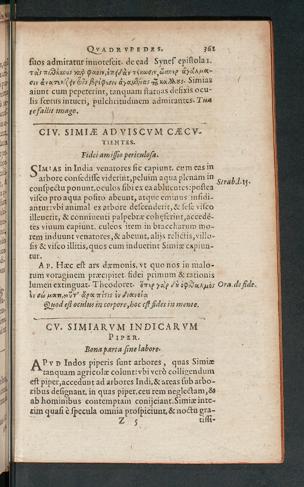 QVADRVPEDES. 361
suos admiratur innotescit. de ea d Synes epistola 1.
Simias
aiunt cum pepererint, tanquam statuas defixis ocu-
lis fœtus intueri, pulchritudinem admirantes. Tua
te fallit imago.
CIV. SIMIÆ AD VISCVM CÆCV-
TIENTES.
Fidei amissio periculosa.
SIMIAS in India venatores sic capiunt. cum eas in
arbore consedisse viderint, peluim aqua plenam in
conspectu ponunt, oculos sibi ex ea abluentes: postea Strab.l.15.
visco pro aqua posito abeunt, atque eminus insidi-
antur: vbi animal ex arbore descenderit, & sese visco
illeuerit, & conniuenti palpebræ cohæserint, accedé-
tes viuum capiunt. culeos item in braccharum mo-
rem induunt venatores, & abeunt, alijs relictis, villo-
sis & visco illitis, quos cum induerint Simiæ capiun-
tur.
AP. Hæc est ars dæmonis. vt quo nos in malo-
rum voraginem præcipitet fidei primum & rationis
lumen extinguat. Theodoret. Ora. de fide.
Quod est oculus in corpore, hoc est fides in mente.
CV. SIMIARVM INDICARVM
PIPER.
Bona parta sine labore.
APVD Indos piperis sunt arbores, quas Simiæ
tanquam agricolæ colunt: vbi verò colligendum
est piper, accedunt ad arbores Indi, & areas sub arbo-
ribus designant, in quas piper, ceu rem neglectam, &
ab hominibus contemptam conijciant. Simiæ inte-
rim quasi è specula omnia prospiciunt, & noctu gra-
Z 5 tissi-